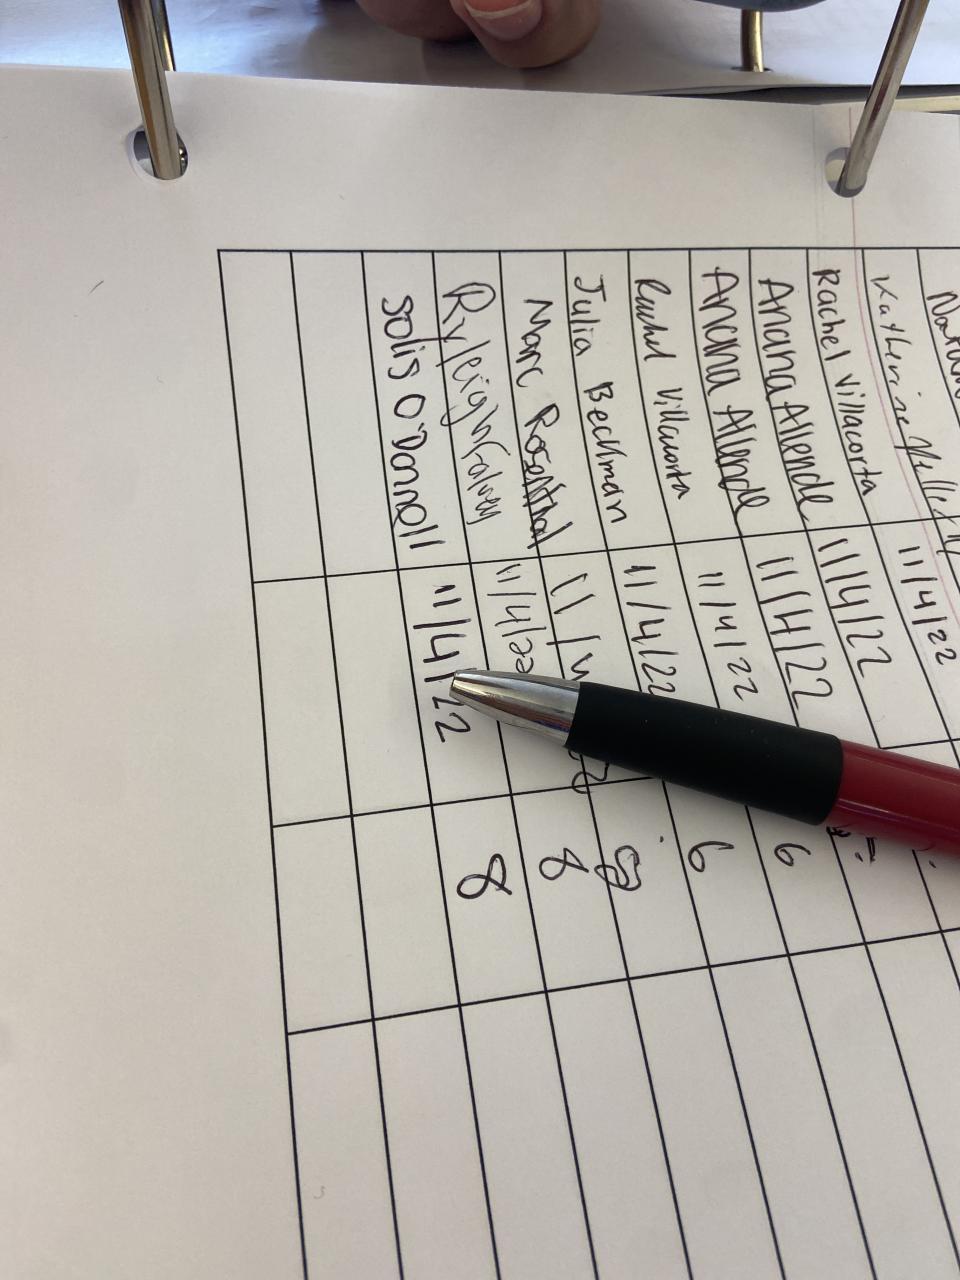 Rachel Villacorta 11/4/22
Anana Allende 11/4/22
Anana Allende 11/4/22
Rachel Villacorta 11/4/22 6
Julia Beckman 11/4/22 6
Marc Rosenthal 11/4 8
Ryleigh Falvey 11/4/22 8
Solis O'Donnell 11/4/22 8